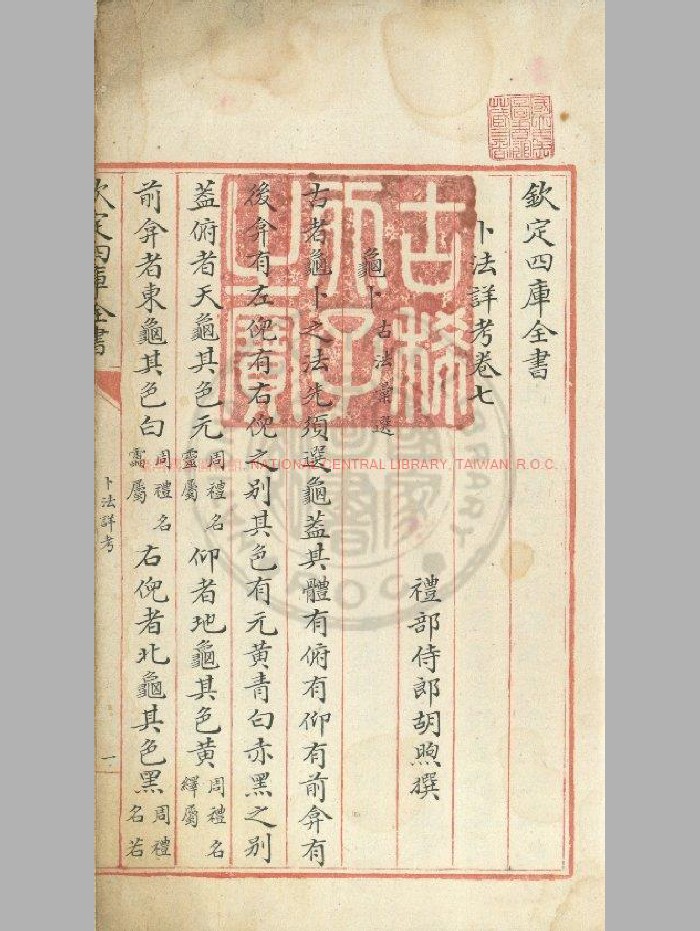 欽定四庫全書
卜法詳考卷七
禮部侍郎胡煦撰
龜卜 古法彙選
古者龜卜之法先須選龜葢其體有俯有仰有前弇有
後弇有左倪有右倪之别其色有元黄青白赤黑之别
葢俯者天龜其色元 周禮名靈屬 仰者地龜其色黄 周禮名繹屬
前弇者東龜其色白 周禮名靁屬 右倪者北龜其色黑 周禮名若
欽定四庫全書
卜法詳考
一
古稀天子之寶
NATIONAL CENTRAL LIBRARY, TAIWAN R.O.C.